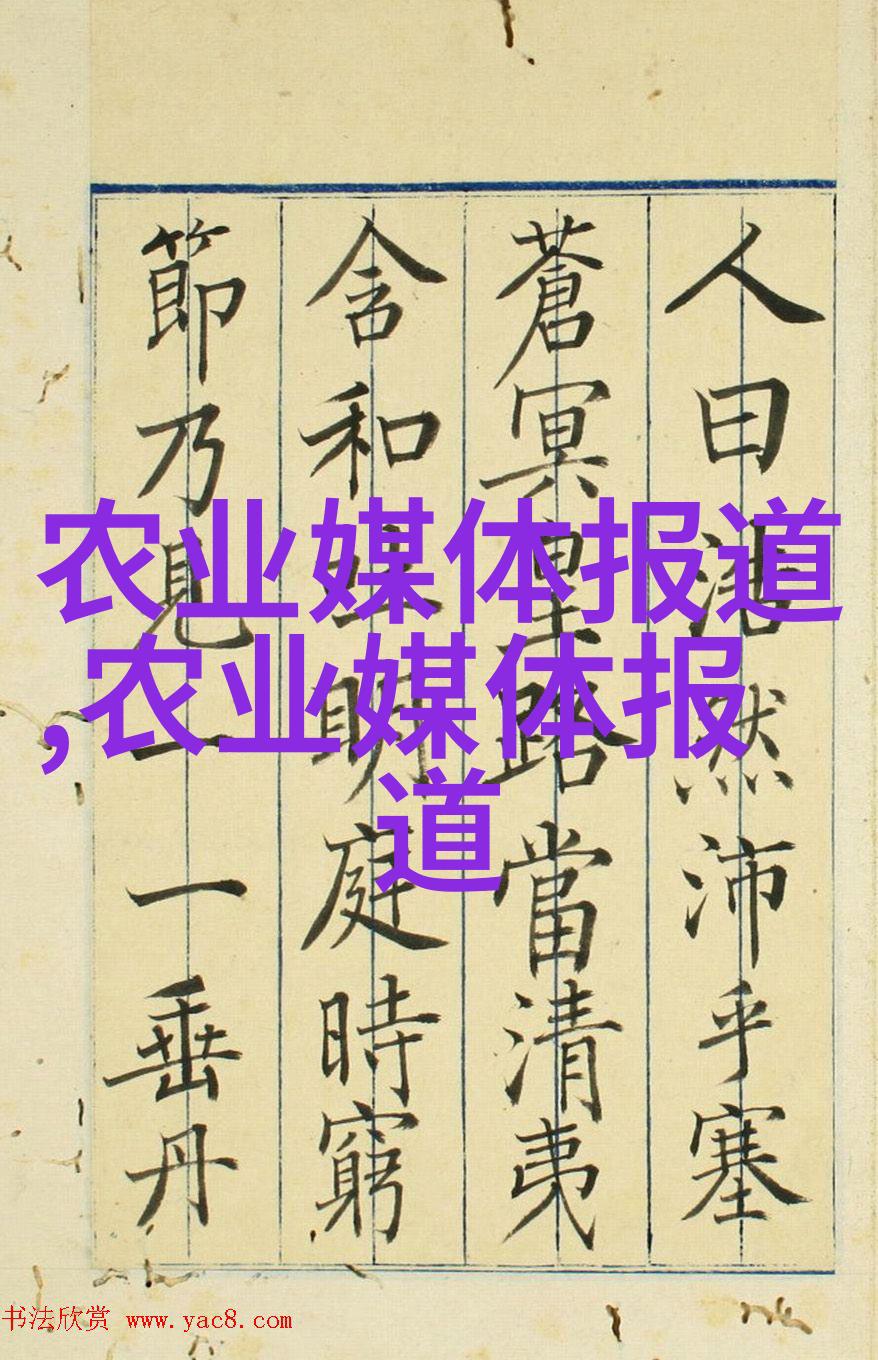 人曰浩然沛乎塞
蒼冥皇路當清夷
含和吐明庭時窮
節乃見一一垂丹
农业媒体报道
,农业媒体报
道
书法欣赏 www.yac8.com